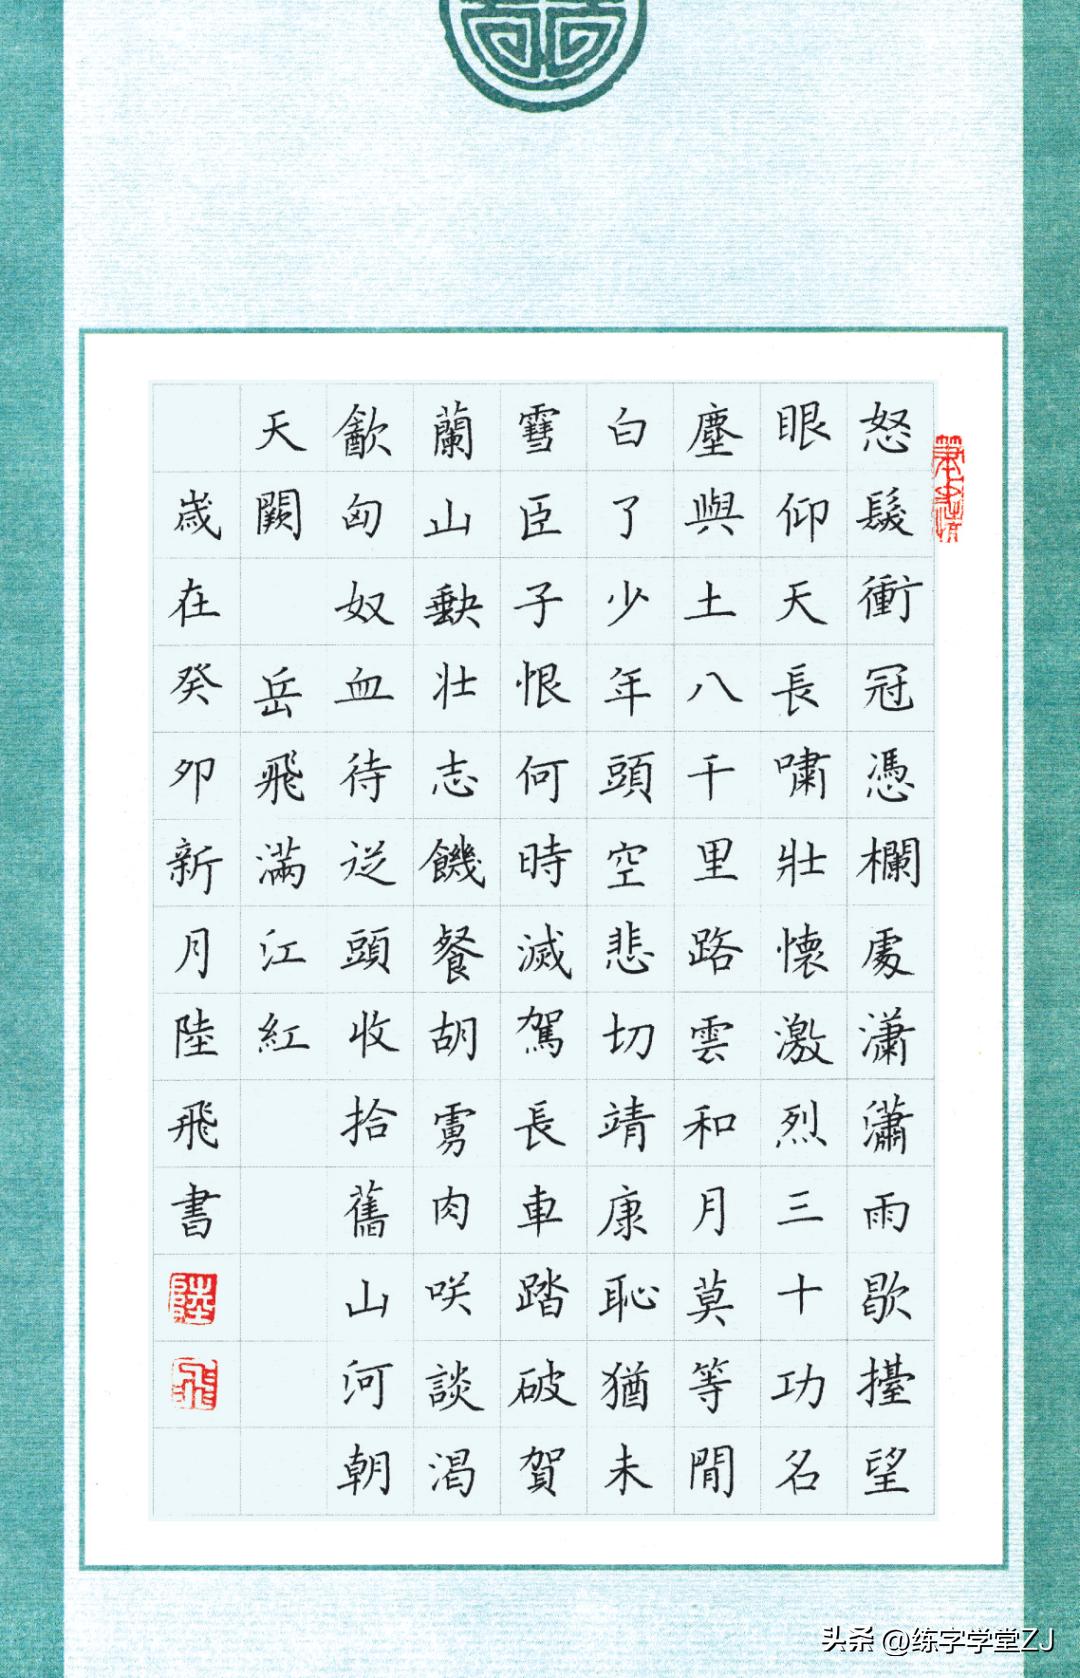 怒髮衝冠憑欄處瀟瀟雨歇擡望
眼仰天長嘯壯懷激烈三十功名
塵與土八千里路雲和月莫等閒
白了少年頭空悲切靖康恥猶未
雪臣子恨何時滅駕長車踏破賀
蘭山缺壯志饑餐胡虜肉咲談渴
飲匈奴血待從頭收拾舊山河朝
天闕 岳飛滿江紅
歲在癸卯新月陸飛書
陸
飛
头条 @练字学堂ZJ